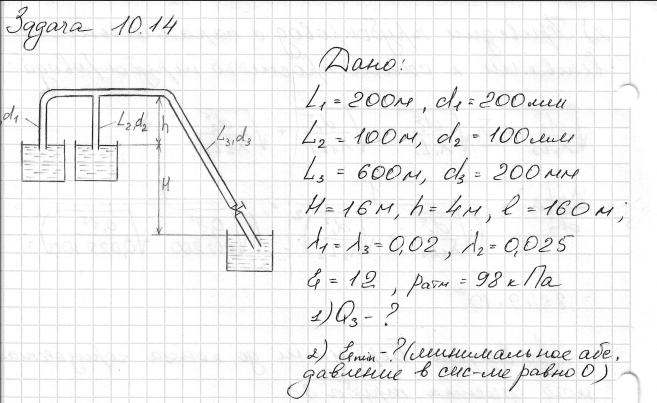 Задача 10.14
Дано:
L₁ = 200м, d₁ = 200мм
L₂ = 100м, d₂ = 100мм
L₃ = 600м, d₃ = 200мм
H = 16м, h = 4м, l = 160м;
λ₁ = λ₃ = 0,02, λ₂ = 0,025
ξ = 12, pатм = 98 кПа
1) Q₃ - ?
2) ξmin - ? (минимальное абс.
давление в сис-ме равно 0)
d₁
L₂,d₂
h
L₃,d₃
H